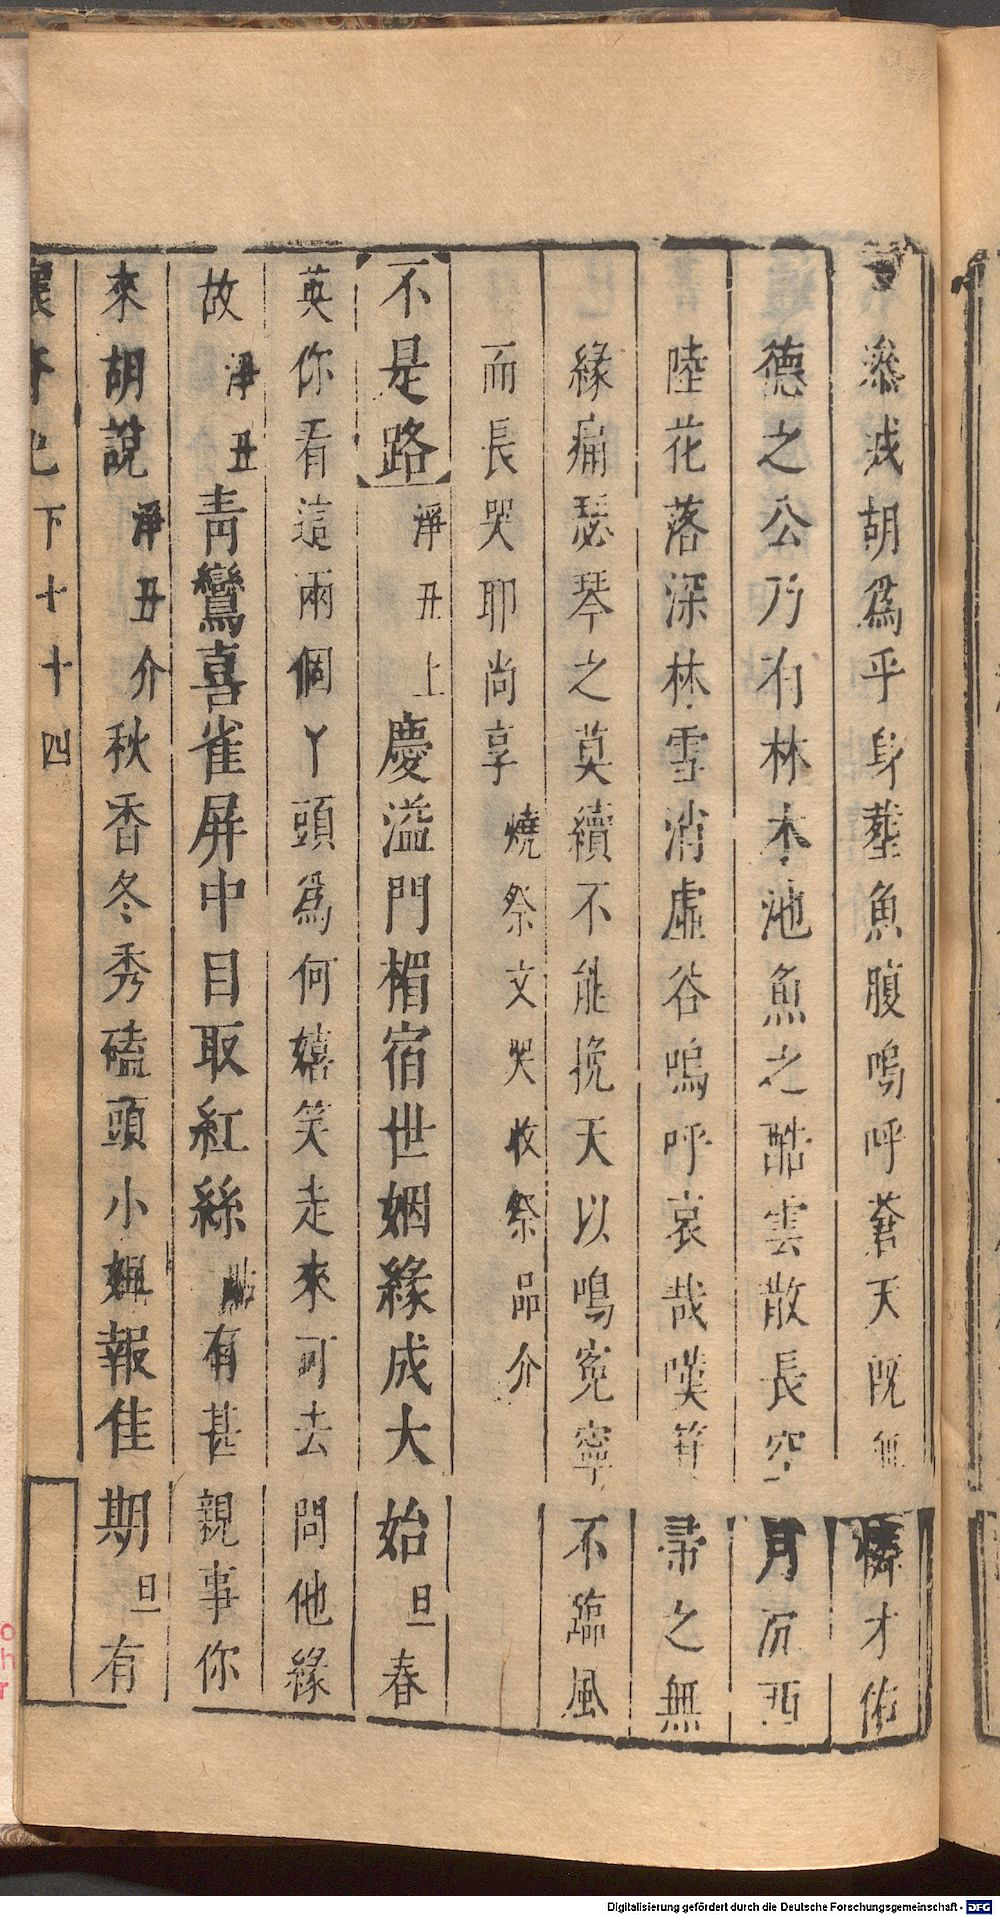 胡爲乎身葬魚腹嗚呼蒼天既無憐才佑
德之公乃有林木池魚之酷雲散長空月沉西
陸花落深林雪消虛谷嗚呼哀哉嘆箕帚之無
緣痛瑟琴之莫續不能挽天以鳴冤寧不臨風
而長哭耶尚享 燒祭文哭收祭品介
【不是路】 淨丑上 慶溢門楣宿世姻緣成大始 旦 春
英你看這兩個丫頭爲何嬉笑走來可去問他緣
故 淨丑 青鸞喜雀屏中目取紅絲 有甚親事你
來胡說 淨丑介 秋香冬秀磕頭小姐報佳期 旦 有
下 十 十四
Digitalisierung gefördert durch die Deutsche Forschungsgemeinschaft - DFG